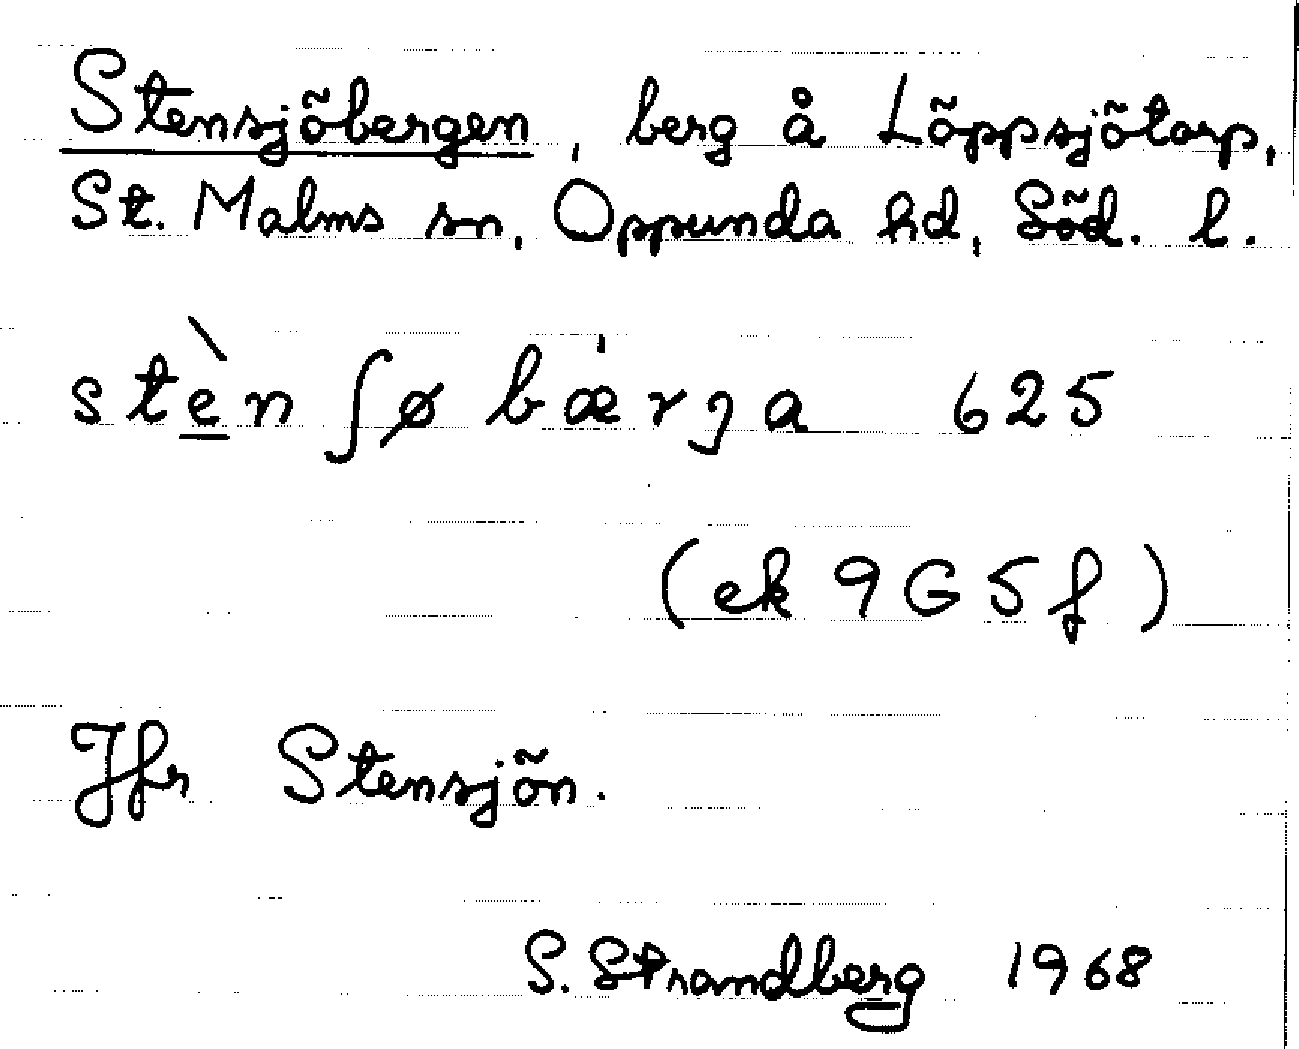 Stensjöbergen, berg å Löppsjötorp,
St. Malms sn, Oppunda hd, Söd. l.
stèn ʃø bærga 625
(ek 9G5f)
Jfr Stensjön.
S. Strandberg 1968